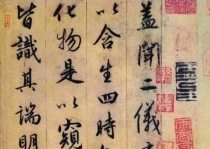 蓋聞二儀有
以含生四時
化物是以窺
皆識其端明